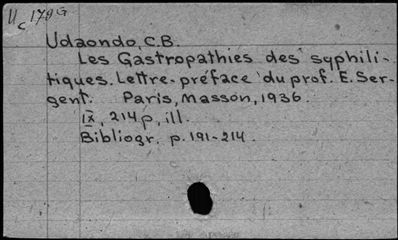 Uc179G
Udaondo, C.B.
Les Gastropathies des syphili-
tiques. Lettre-préface du prof. E. Ser-
gent. Paris, Masson, 1936.
IX, 214 p, ill.
Bibliogr. p. 191-214.